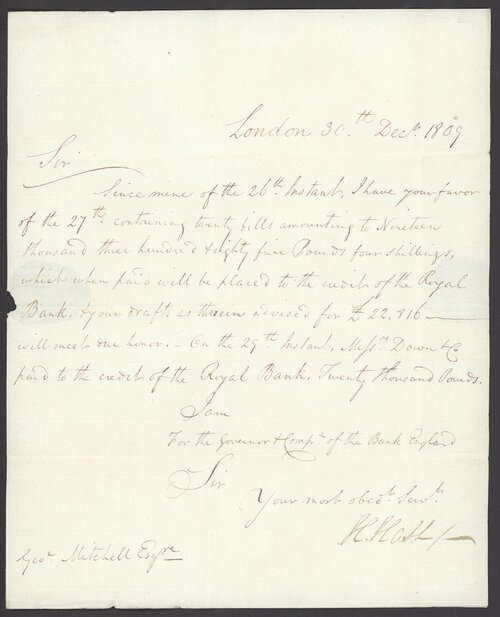 London 30.th Decr. 1809
Sir
Since mine of the 26th. Instant, I have your favor
of the 27th. containing twenty bills amounting to Nineteen
thousand three hundred & eighty five Pounds four shillings,
which when paid will be placed to the credit of the Royal
Bank, & your drafts as therein advised for £ 22,816 —
will meet due honor. — On the 29th. Instant, Messrs. Down & Co
paid to the credit of the Royal Bank, Twenty thousand Pounds.
I am
For the Governor & Compy. of the Bank England
Sir
Your most obedt. Servt.
Geo. Mitchell Esqre